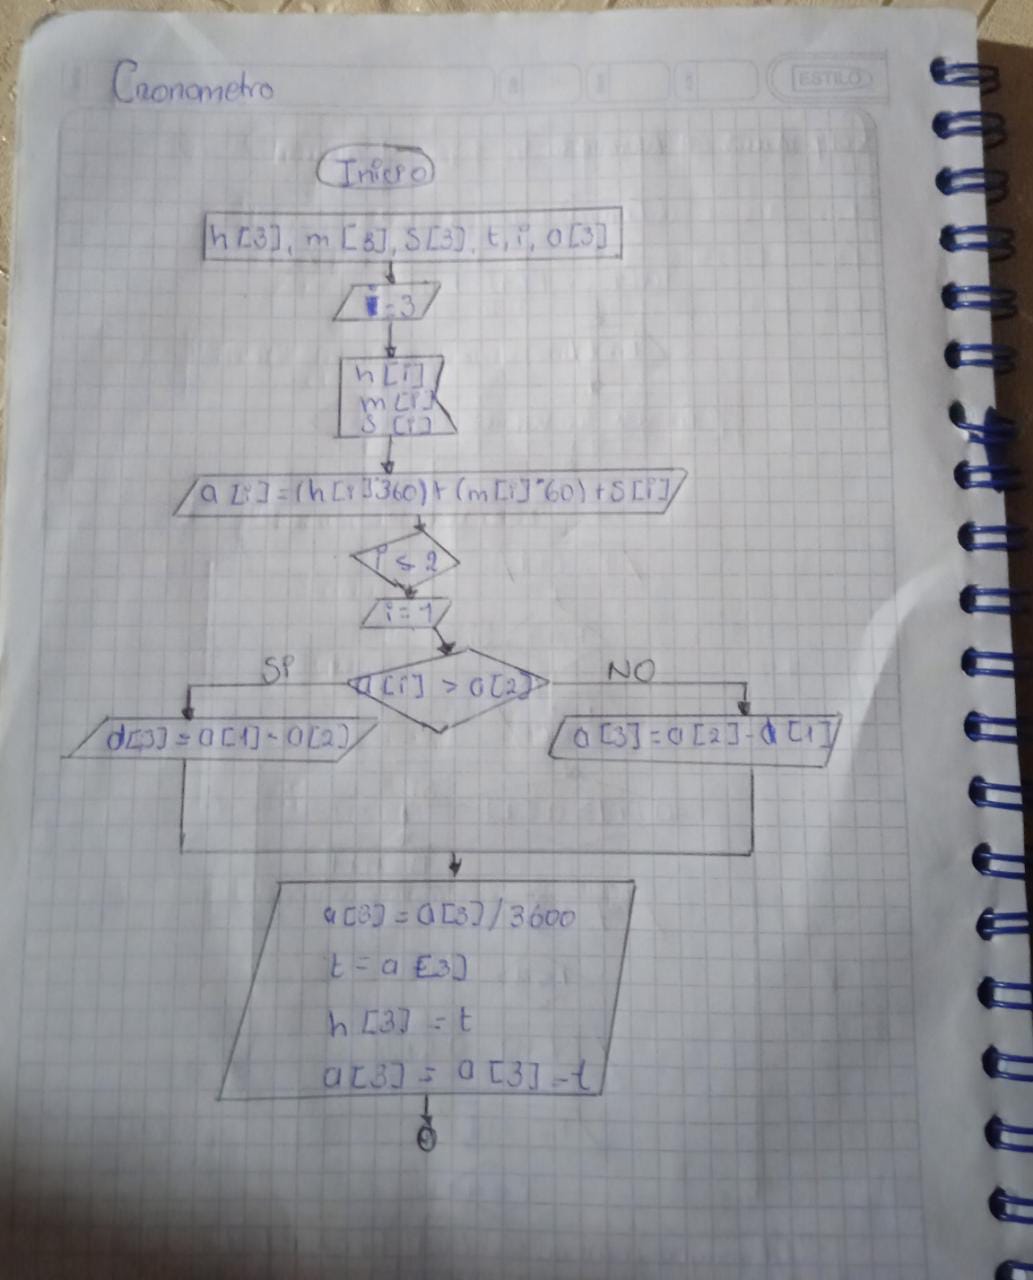 Cronometro
ESTILO
Inicio
h[3], m[3], S[3], t, i, a[3]
i=3
h[i]
m[i]
S[i]
a[i]=(h[i]*360)+(m[i]*60)+S[i]
i ≤ 2
i=1
SI
a[i] > a[2]
NO
d[3]=a[1]-a[2]
a[3]=a[2]-d[1]
a[3]=a[3]/3600
t=a[3]
h[3]=t
a[3]=a[3]-t